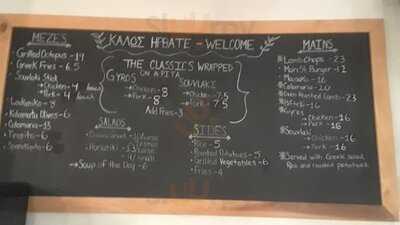 ΚΑΛΩΣ ΗΡΘΑΤΕ - WELCOME
MEZES
Grilled Octopus - 17
Greek Fries - 6.5
Souvlaki Stick
→ Chicken - 4
→ Pork - 4
Loukaniko - 8
Kalamata Olives - 6
Calamari - 13
Tiropita - 6
Spanakopita - 6
THE CLASSICS WRAPPED
ON A PITA
GYROS
→ Chicken - 8
→ Pork - 8
SOUVLAKI
→ Chicken - 7.5
→ Pork - 7.5
Add Fries - 3
SALADS
Horiatiki - 13
→ Soup of the Day - 6
SIDES
Rice - 5
Roasted Potatoes - 5
Grilled Vegetables - 6
Fries - 4
MAINS
Lamb Chops - 23
Main St Burger - 12
Calamari - 20
Oven Roasted Lamb - 23
Gyros
→ Chicken - 16
→ Pork - 16
Souvlaki
→ Chicken - 16
→ Pork - 16
Served with Greek salad,
Rice and roasted potatoes